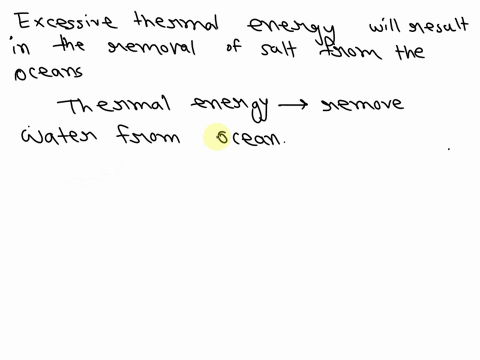 Excessive thermal energy will result
in the removal of salt from the
oceans
Thermal energy → remove
water from ocean.